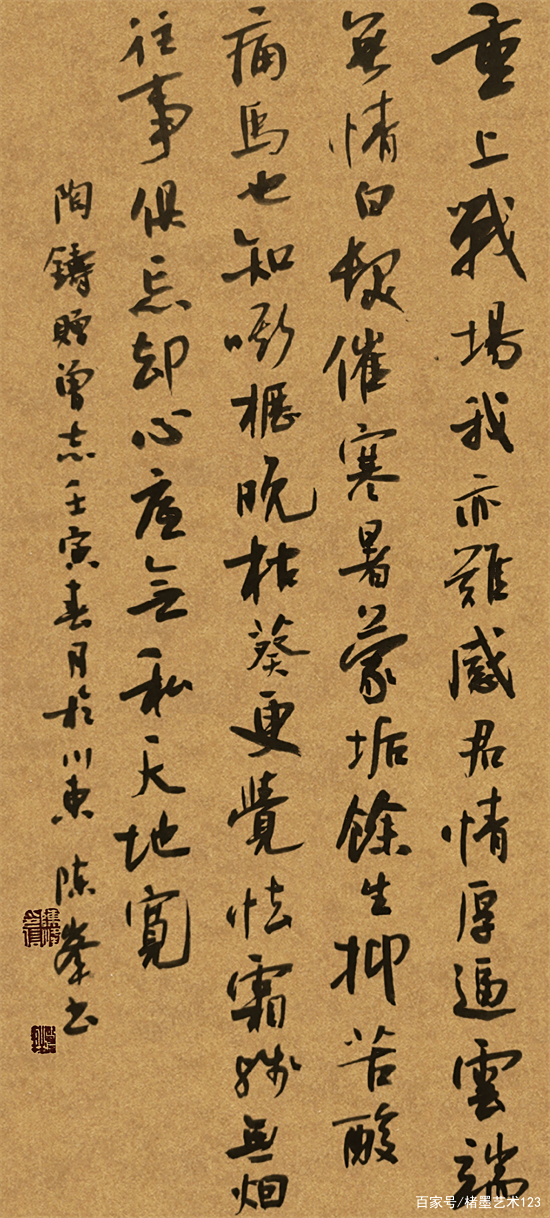 重上戰場我亦難感君情厚逼雲端
無情白髮催寒暑蒙垢餘生抑苦酸
痛馬也知嘶櫪晚枯葵更覺怯霜殘無烟
往事俱忘却心底無私天地寬
陶鑄贈曾志壬寅春月於川東 陳峯书
百家号/楮墨艺术123